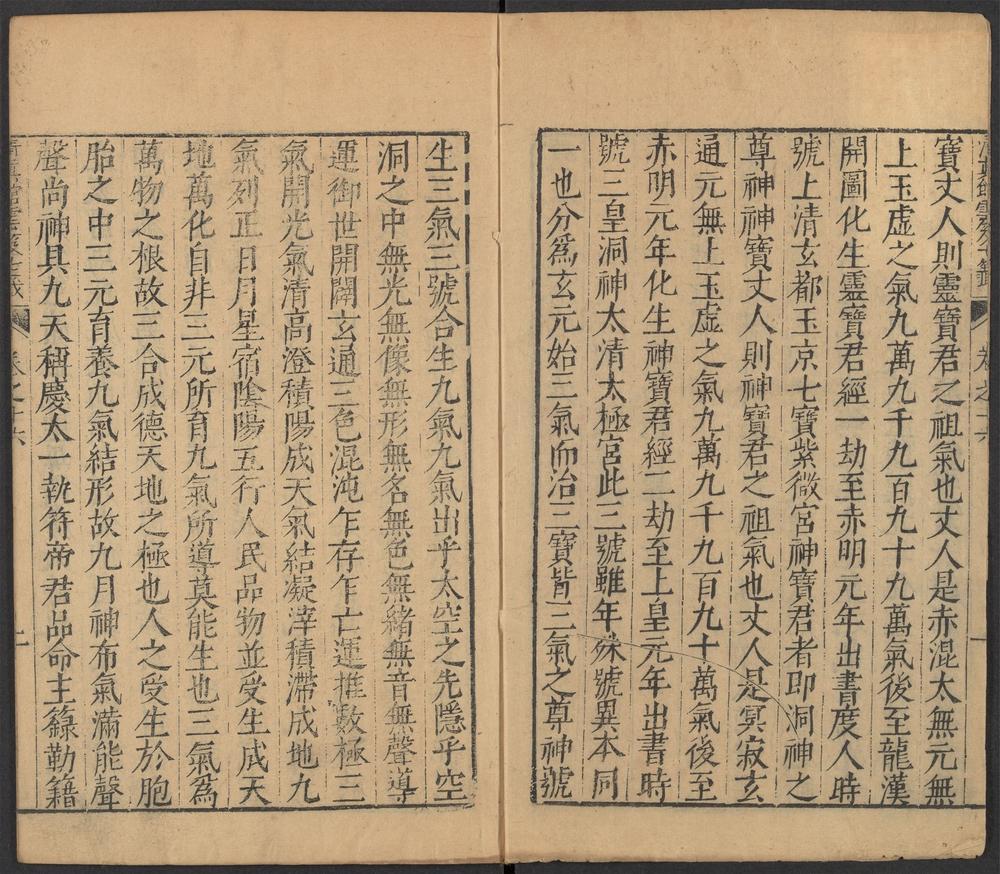 寶丈人則靈寶君之祖氣也丈人是赤混太無元無
上玉虛之氣九萬九千九百九十九萬氣後至龍漢
開圖化生靈寶君經一劫至赤明元年出書度人時
號上清玄都玉京七寶紫微宮神寶君者即洞神之
尊神神寶丈人則神寶君之祖氣也丈人是冥寂玄
通元無上玉虛之氣九萬九千九百九十萬氣後至
赤明元年化生神寶君經二劫至上皇元年出書時
號三皇洞神太清太極宮此三號雖年殊號異本同
一也分爲玄元始三氣而治三寶皆三氣之尊神號
生三氣三號合生九氣九氣出乎太空之先隱乎空
洞之中無光無像無形無名無色無緒無音無聲導
運御世開闢玄通三色混沌乍存乍亡運推數極三
氣開光氣清高澄積陽成天氣結凝滓積滯成地九
氣列正日月星宿陰陽五行人民品物並受生成天
地萬化自非三元所育九氣所導莫能生也三氣爲
萬物之根故三合成德天地之極也人之受生於胞
胎之中三元育養九氣結形故九月神布氣滿能聲
聲尚神具九天稱慶太一執符帝君品命主籙勒籍
卷之十六